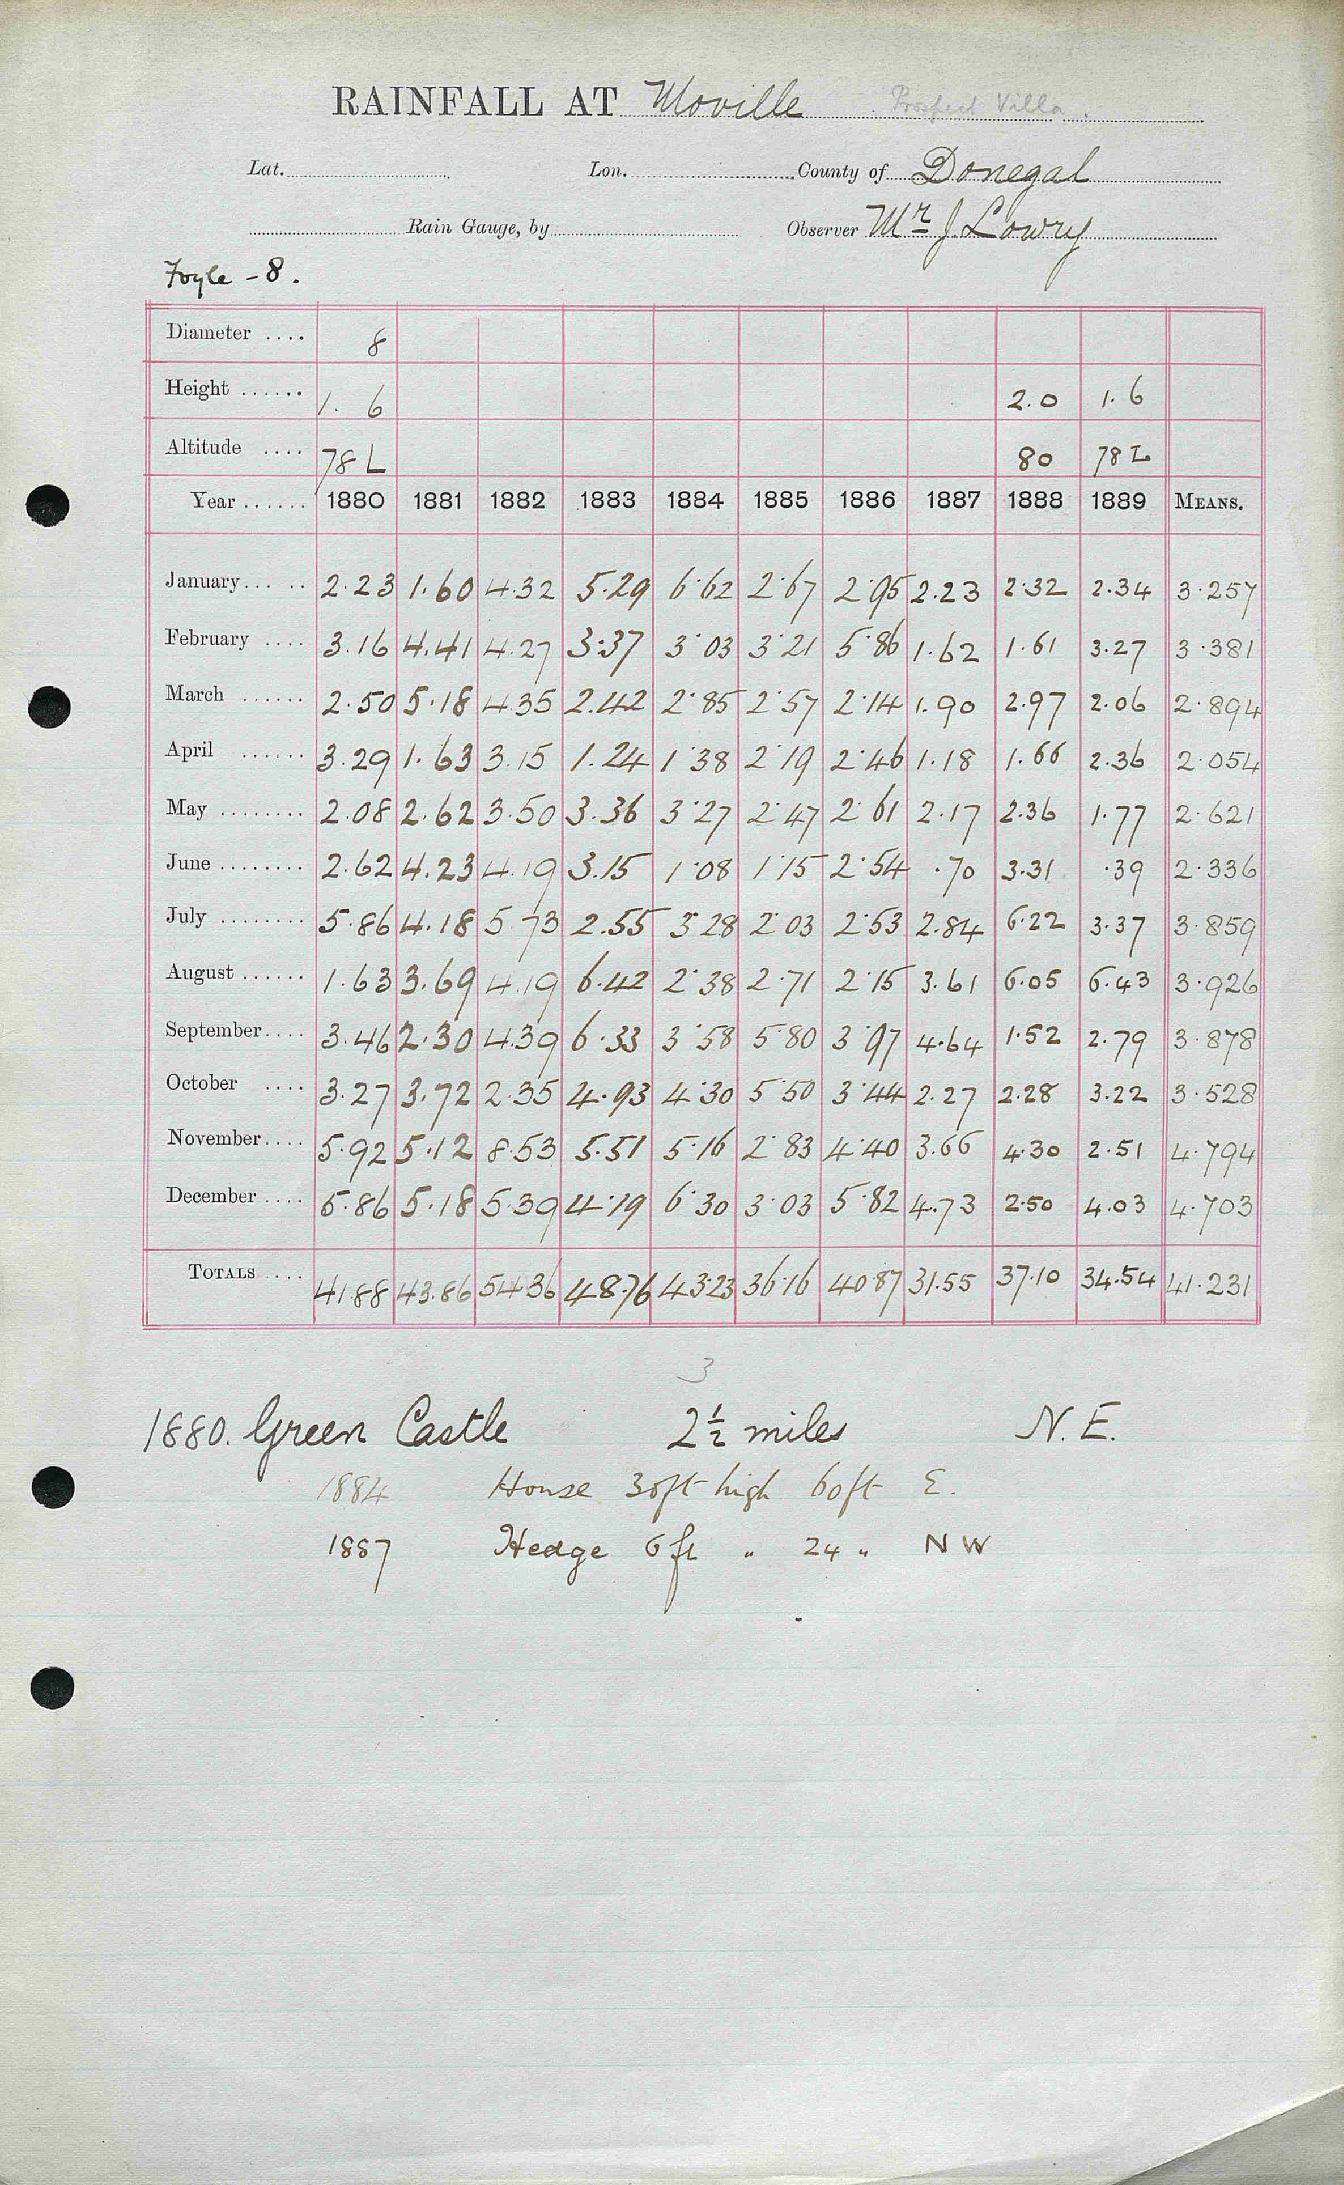 RAINFALL AT Moville Prospect Villa.
Lat. Lon. County of Donegal
Rain Gauge, by Observer Mr J Lowry
Foyle - 8.
Diameter .... 8
Height ...... 1. 6 2.0 1.6
Altitude .... 78 L 80 78 L
Year ...... 1880 1881 1882 1883 1884 1885 1886 1887 1888 1889 MEANS.
January... .. 2.23 1.60 4.32 5.29 6.62 2.67 2.95 2.23 2.32 2.34 3.257
February .... 3.16 4.41 4.27 3.37 3.03 3.21 5.86 1.62 1.61 3.27 3.381
March ...... 2.50 5.18 4.35 2.42 2.85 2.57 2.14 1.90 2.97 2.06 2.894
April ...... 3.29 1.63 3.15 1.24 1.38 2.19 2.46 1.18 1.66 2.36 2.054
May ........ 2.08 2.62 3.50 3.36 3.27 2.47 2.61 2.17 2.36 1.77 2.621
June ........ 2.62 4.23 4.19 3.15 1.08 1.15 2.54 .70 3.31 .39 2.336
July ........ 5.86 4.18 5.73 2.55 3.28 2.03 2.53 2.84 6.22 3.37 3.859
August ...... 1.63 3.69 4.19 6.42 2.38 2.71 2.15 3.61 6.05 6.43 3.926
September.... 3.46 2.30 4.39 6.33 3.58 5.80 3.97 4.64 1.52 2.79 3.878
October .... 3.27 3.72 2.35 4.93 4.30 5.50 3.44 2.27 2.28 3.22 3.528
November.... 5.92 5.12 8.53 5.51 5.16 2.83 4.40 3.66 4.30 2.51 4.794
December .... 5.86 5.18 5.39 4.19 6.30 3.03 5.82 4.73 2.50 4.03 4.703
TOTALS .... 41.88 43.86 54.36 48.76 43.23 36.16 40.87 31.55 37.10 34.54 41.231
3
1880. Green Castle 2½ miles N.E.
1884 House 30ft high 60ft E.
1887 Hedge 6 ft " 24 " N W